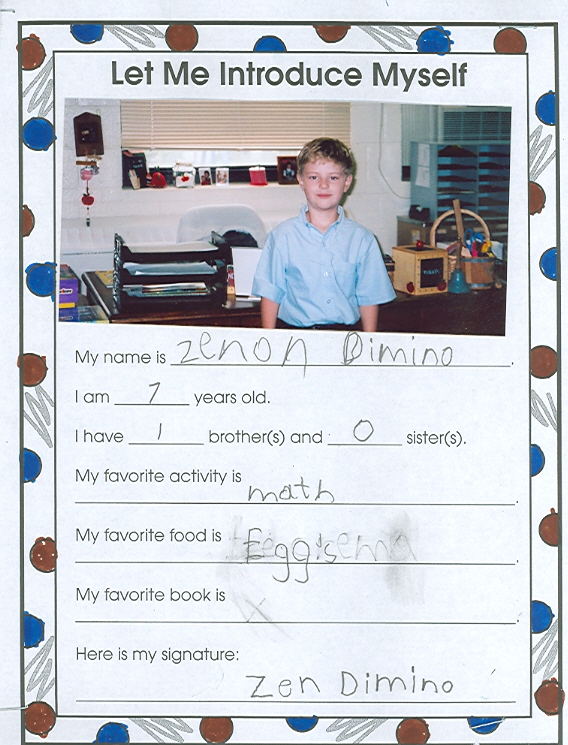 Let Me Introduce Myself
My name is zenon Dimino.
I am 7 years old.
I have 1 brother(s) and 0 sister(s).
My favorite activity is
math.
My favorite food is Eggs.
My favorite book is
.
Here is my signature:
Zen Dimino.